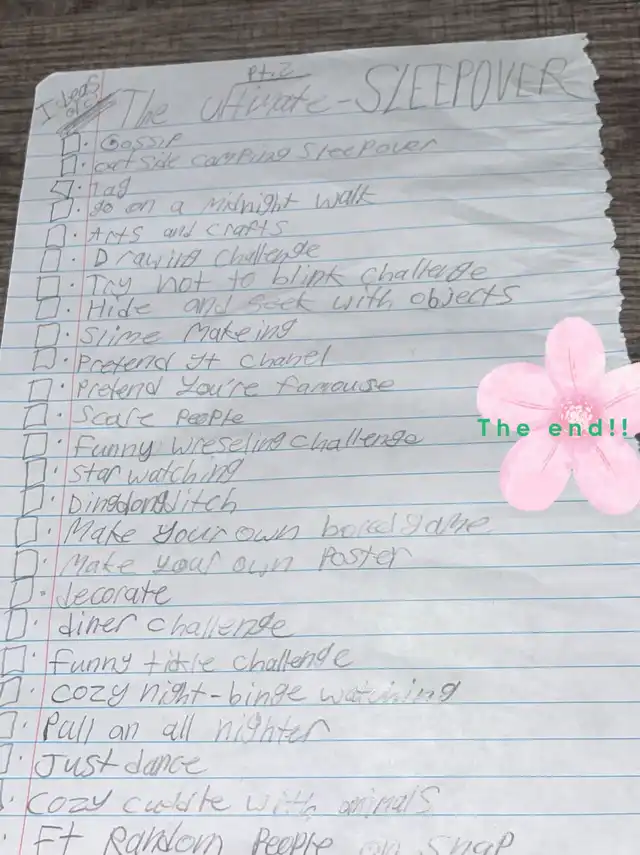 Pt.2
Ideas of:
The Ultimate-SLEEPOVER
Gossip
outside camping sleepover
Tag
go on a Midnight walk
Arts and crafts
Drawing challenge
Try not to blink challenge
Hide and seek with objects
Slime Makeing
Pretend yt chanel
Pretend you're famouse
Scare People
Funny wreseling challenge
Star watching
Dingdongditch
Make your own boredgame
Make your own Poster
decorate
diner challenge
funny tickle challenge
cozy night-binge watching
Pull an all nighter
Just dance
cozy cuddle with animals
Ft Random People on snap
The end!!